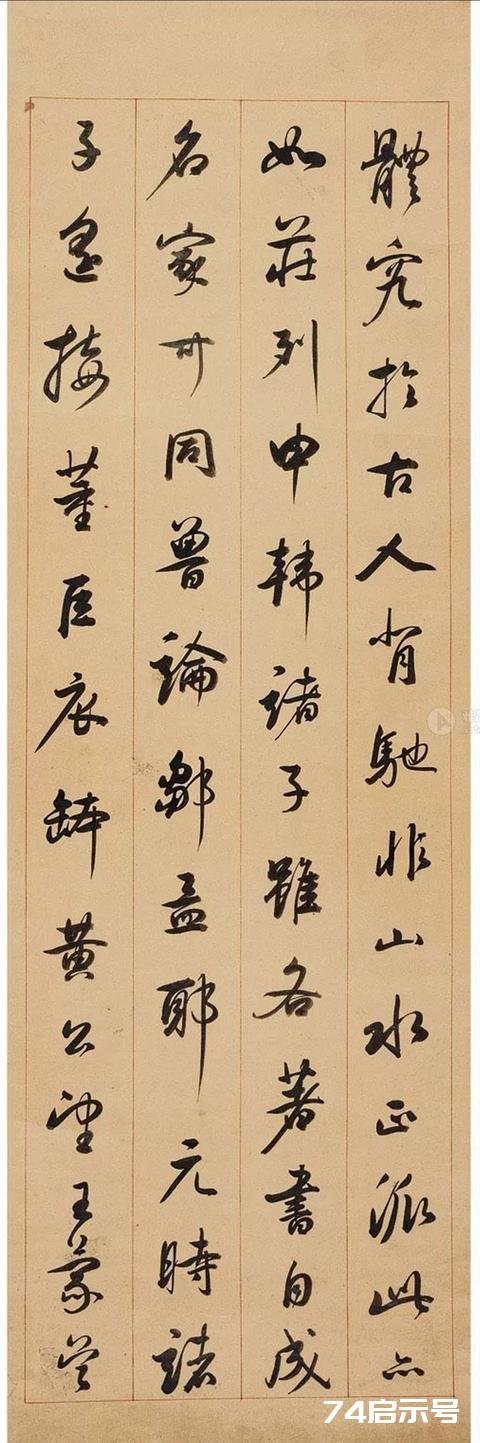 體究於古人背馳非山水正派此亦
如莊列申韓諸子雖各著書自成
名家可同魯論鄒孟耶元時諸
子遙接董巨衣鉢黃公望王蒙
74启示号